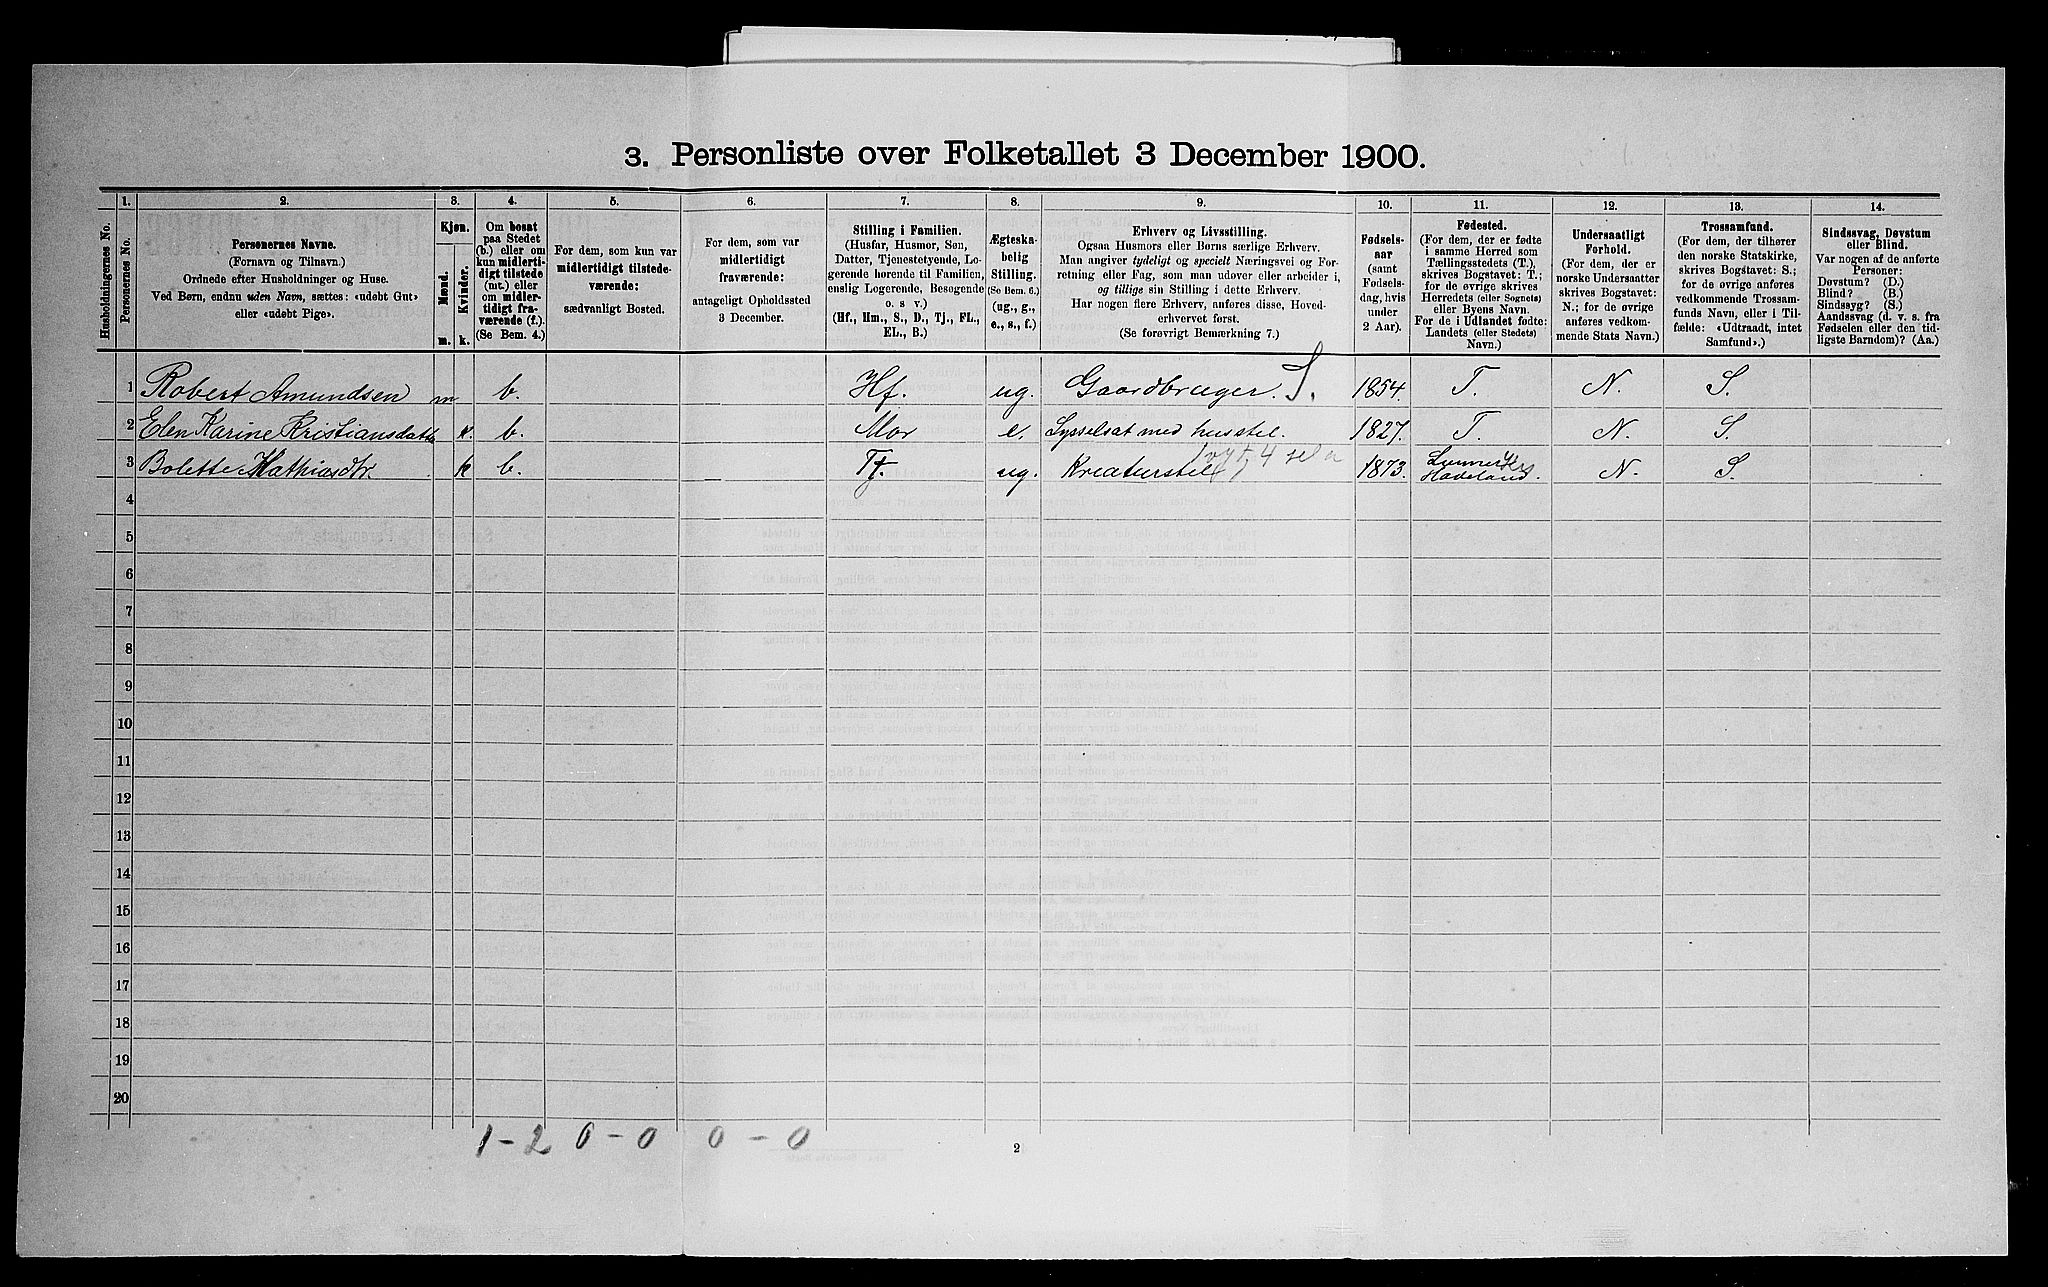 3. Personliste over Folketallet 3 December 1900.
1. 2. 3. 4. 5. 6. 7. 8. 9. 10. 11. 12. 13. 14.
Husholdningernes No.
Personernes No.
Personernes Navne.
(Fornavn og Tilnavn.)
Ordnede efter Husholdninger og Huse.
Ved Børn, endnu uden Navn, sættes: «udøbt Gut»
eller «udøbt Pige».
Kjøn.
Mænd.
Kvinder.
m. k.
Om bosat
paa Stedet
(b.) eller om
kun midlerti-
digt tilstede
(mt.) eller
om midler-
tidigt fra-
værende (f.).
(Se Bem. 4.)
For dem, som kun var
midlertidigt tilstede-
værende:
sædvanligt Bosted.
For dem, som var
midlertidigt
fraværende:
antageligt Opholdssted
3 December.
Stilling i Familien.
(Husfar, Husmor, Søn,
Datter, Tjenestetyende, Lo-
gerende hørende til Familien,
enslig Logerende, Besøgende
o. s v.)
(Hf., Hm., S., D., Tj., FL.,
EL., B.)
Ægteska-
belig
Stilling.
(Se Bem. 6.)
(ug., g.,
e., s., f.)
Erhverv og Livsstilling.
Ogsaa Husmors eller Børns særlige Erhverv.
Man angiver tydeligt og specielt Næringsvei og For-
retning eller Fag, som man udøver eller arbeider i,
og tillige sin Stilling i dette Erhverv.
Har nogen flere Erhverv, anføres disse, Hoved-
erhvervet først.
(Se forøvrigt Bemærkning 7.)
Fødsels-
aar
(samt
Fødsels-
dag, hvis
under
2 Aar).
Fødested.
(For dem, der er fødte
i samme Herred som
Tællingsstedets (T.),
skrives Bogstavet: T.;
for de øvrige skrives
Herredets (eller Sognets)
eller Byens Navn.
For de i Udlandet fødte:
Landets (eller Stedets)
Navn.)
Undersaatligt
Forhold.
(For dem, der er
norske Undersaatter
skrives Bogstavet:
N.; for de øvrige
anføres vedkom-
mende Stats Navn.)
Trossamfund.
(For dem, der tilhører
den norske Statskirke,
skrives Bogstavet: S.;
for de øvrige anføres
vedkommende Trossam-
funds Navn, eller i Til-
fælde: «Udtraadt, intet
Samfund».)
Sindssvag, Døvstum
eller Blind.
Var nogen af de anførte
Personer:
Døvstum? (D.)
Blind? (B.)
Sindssyg? (S.)
Aandssvag (d. v. s. fra
Fødselen eller den tid-
ligste Barndom)? (Aa.)
1 Robert Amundsen m b. Hf. ug. Gaardbruger. S. 1854. T. N. S.
2 Elen Karine Kristiansdatter k. b. Mor e. Sysselsat med husstel. 1827. T. N. S.
3 Bolette Mathiasdtr. k b. Tj. ug. Kreaturstel 1873. Hadeland. N. S.
4
5
6
7
8
9
10
11
12
13
14
15
16
17
18
19
20
1 - 2 0 - 0 0 - 0
2